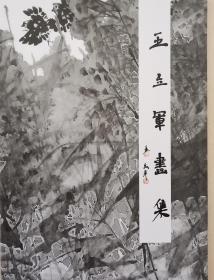 王立軍畫集